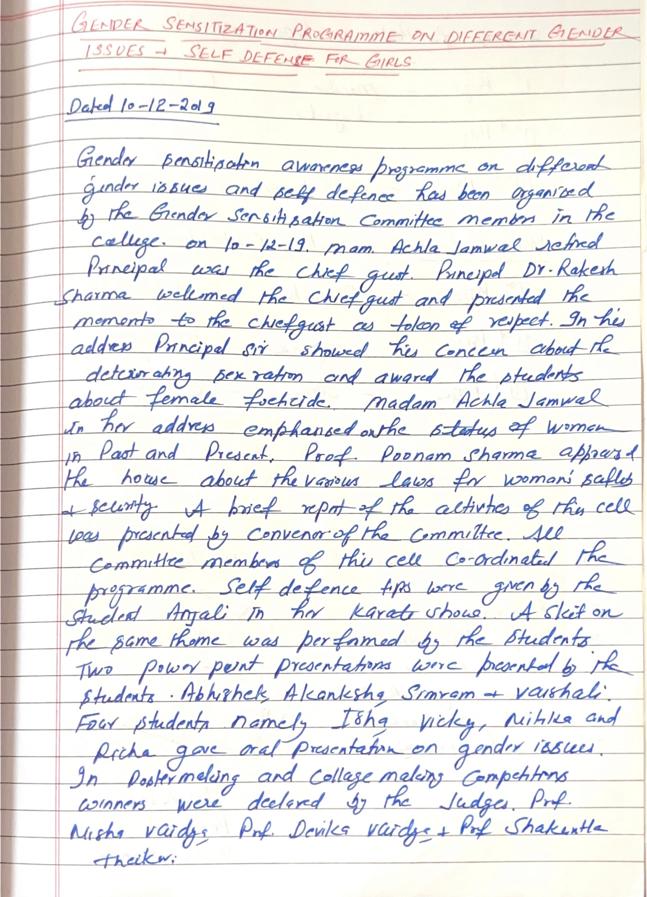 GENDER SENSITIZATION PROGRAMME ON DIFFERENT GENDER
ISSUES + SELF DEFENSE FOR GIRLS
Dated 10-12-2019
Gender sensitisation awareness programme on different
gender issues and self defence has been organised
by the Gender Sensitisation Committee members in the
college. on 10-12-19. Mam. Achla Jamwal retired
Principal was the chief gust. Principal Dr. Rakesh
Sharma welcomed the chief gust and presented the
memento to the chief gust as token of respect. In his
address Principal sir showed his concern about the
deteriorating sex ration and awared the students
about female foeticide. Madam Achla Jamwal
in her address emphansed on the status of women
in Past and Present. Prof. Poonam Sharma appraised
the house about the various laws for woman's safety
& security. A brief report of the activities of this cell
was presented by convenor of the Committee. All
Committee members of this cell Co-ordinated the
programme. Self defence tips were given by the
student Anjali in her karate show. A skit on
the same theme was performed by the students
Two power point presentations were presented by the
students. Abhishek, Akanksha, Simram + vaishali.
Four students namely Isha, vicky, Nitika and
Richa gave oral presentation on gender issues.
In Postermaking and collage making Competitions
winners were declared by the Judges. Prof.
Nisha vaidya Prof. Devika vaidya + Prof Shakuntla